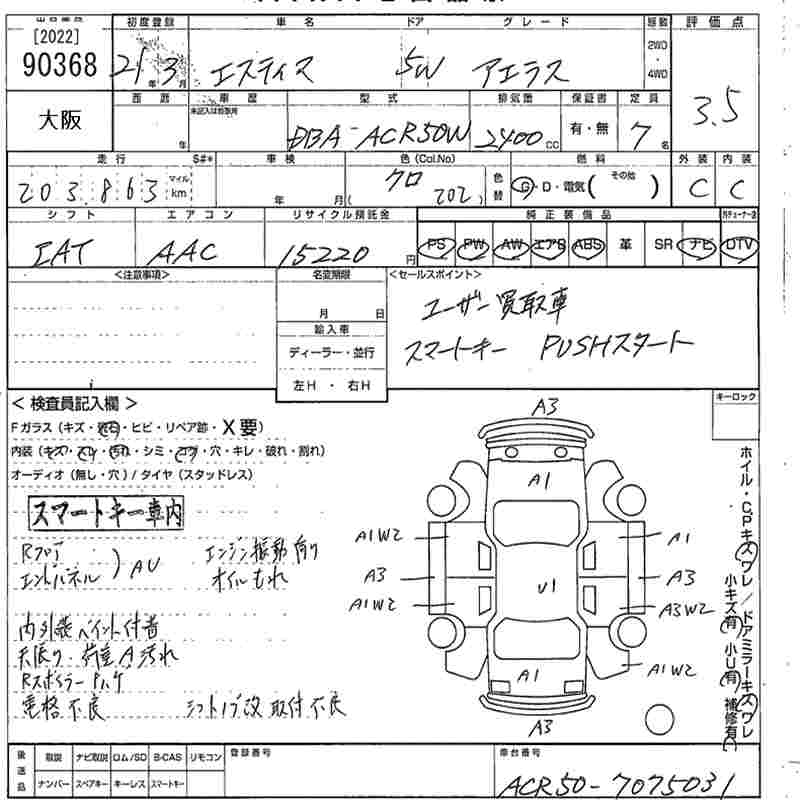 [2022]
90368
大阪
初度登録 車名 ドア グレード 評価点
21年 3月 エスティマ 5W アエラス 3.5
2WD・4WD
西暦 車歴 型式 排気量 保証書 定員
未記入は自家用
年 DBA-ACR50W 2400cc 有・無 7名
走行 S#* 車検 色(Col.No) 燃料 外装 内装
203,863 マイル km 年 月( クロ 202) 色替 G・D・電気( その他 ) C C
シフト エアコン リサイクル預託金 純正装備品
IAT AAC 15220円 PS PW AW エアB ABS 革 SR ナビ DTV
<注意事項> 名変期限 <セールスポイント>
月 日
輸入車
ディーラー・並行
左H・右H
ユーザー買取車
スマートキー PUSHスタート
<検査員記入欄> キーロック
Fガラス(キズ・・ヒビ・リペア跡・X要)
内装(キズ・スリ・汚れ・シミ・コゲ・穴・キレ・破れ・割れ)
オーディオ(無し・穴)/タイヤ(スタッドレス)
スマートキー車内
Rフロア
エンドパネル ) AU
エンジン振動有り
オイルもれ
内外装ペイント付着
天張り・荷室A汚れ
Rスポイラー
電格不良 シフトノブ改 取付不良
A3
A1
A1W2 A1
A3 U1 A3
A1W2 A3W2
A1 A1W2
A3
ホイル・C,Pキズワレ/ドアミラーキズワレ
小キズ(有) 小U(有) 補修有
後送品 取説 ナビ取説 ロム/SD B-CAS リモコン 登録番号 車台番号
ナンバー スペアキー キーレス スマートキー ACR50-7075031